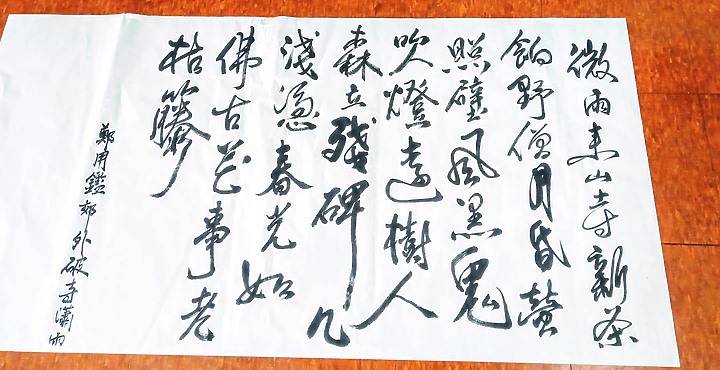 微雨來山寺新茶
餉野僧月昏螢
照壁風黑鬼
吹燈遠樹人
森立殘碑几
淺憑春光如
佛古花事老
枯籐
鄭用鑑郊外破寺瀟雨